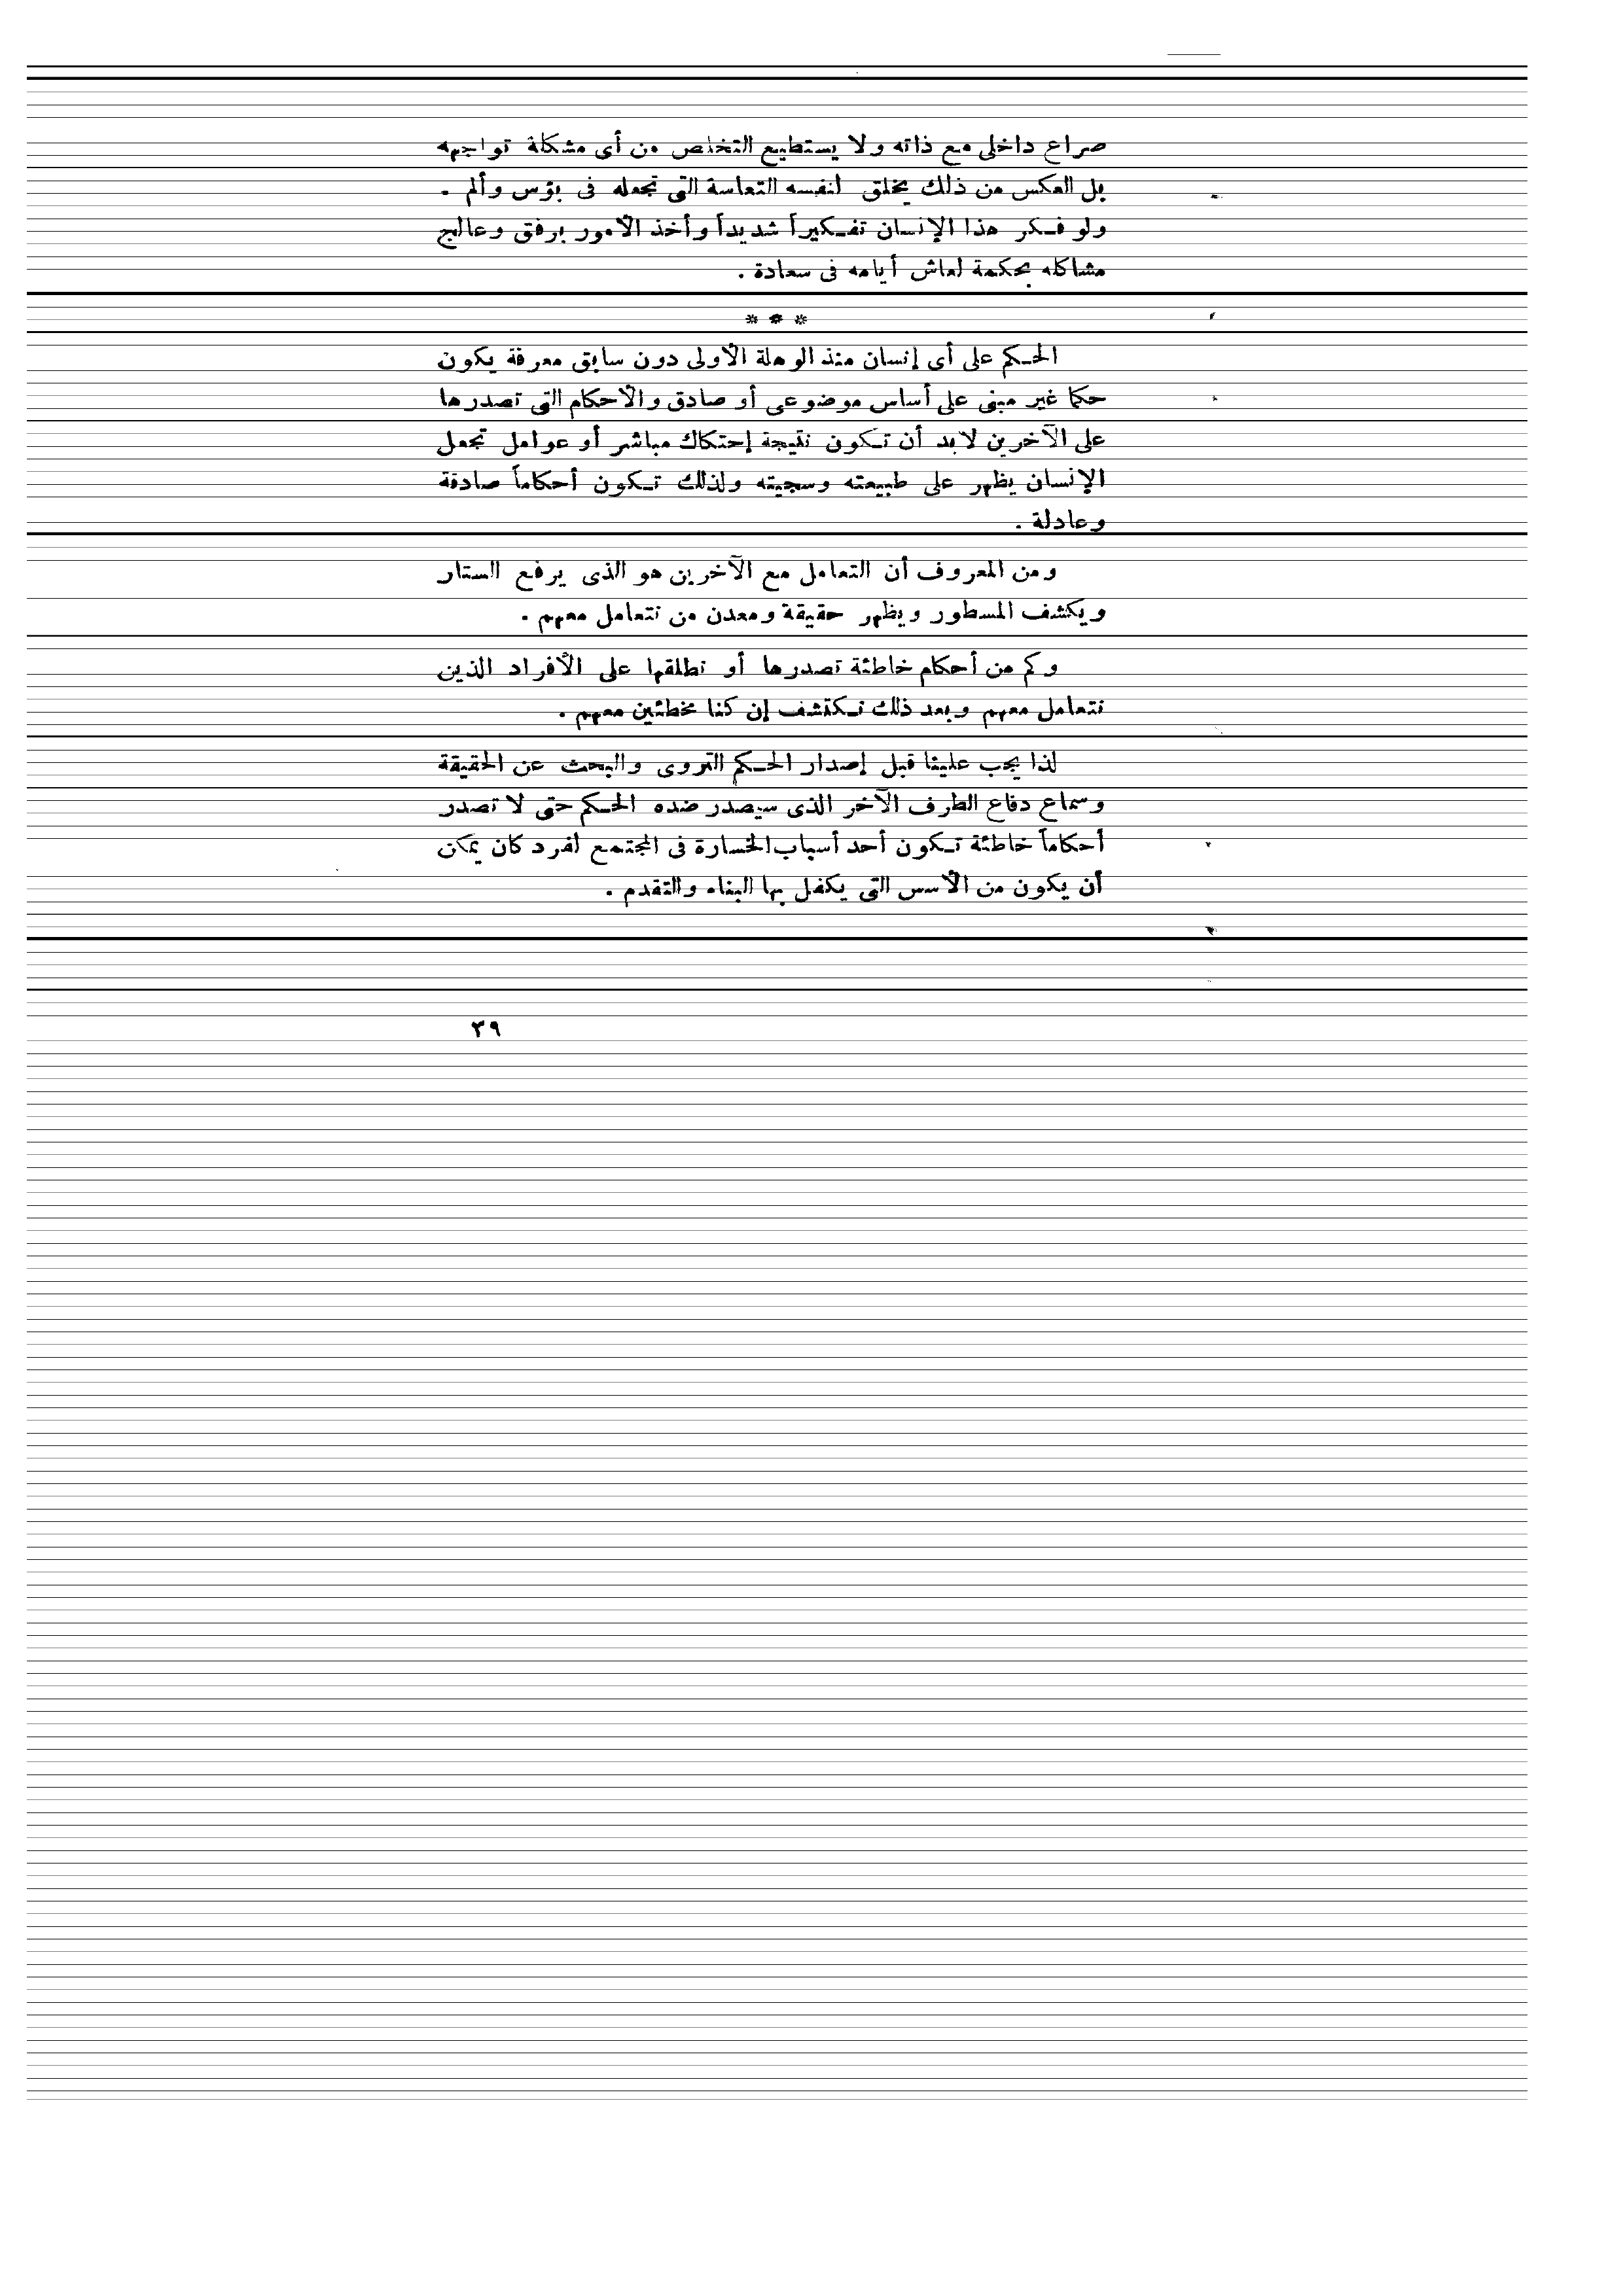 صراع داخلى مع ذاته ولا يستطيع التخلص من أى مشكلة تواجهه
بل العكس من ذلك يخلق لنفسه التعاسة التى تجعله فى بؤس وألم .
ولو فكر هذا الإنسان تفكيراً شديداً وأخذ الأمور برفق وعالج
مشاكله بحكمة لعاش أيامه فى سعادة .
* * *
الحكم على أى إنسان منذ الوهلة الأولى دون سابق معرفة يكون
حكما غير مبنى على أساس موضوعى أو صادق والأحكام التى تصدرها
على الآخرين لابد أن تكون نتيجة إحتكاك مباشر أو عوامل تجعل
الإنسان يظهر على طبيعته وسجيته ولذلك تكون أحكاماً صادقة
وعادلة .
ومن المعروف أن التعامل مع الآخرين هو الذى يرفع الستار
ويكشف المسطور ويظهر حقيقة ومعدن من نتعامل معهم .
وكم من أحكام خاطئة تصدرها أو نطلقها على الأفراد الذين
نتعامل معهم وبعد ذلك نكتشف إن كنا مخطئين معهم .
لذا يجب علينا قبل إصدار الحكم التروى والبحث عن الحقيقة
وسماع دفاع الطرف الآخر الذى سيصدر ضده الحكم حتى لا تصدر
أحكاماً خاطئة تكون أحد أسباب الخسارة فى المجتمع لفرد كان يمكن
أن يكون من الأسس التى يكفل بها البناء والتقدم .
٣٩